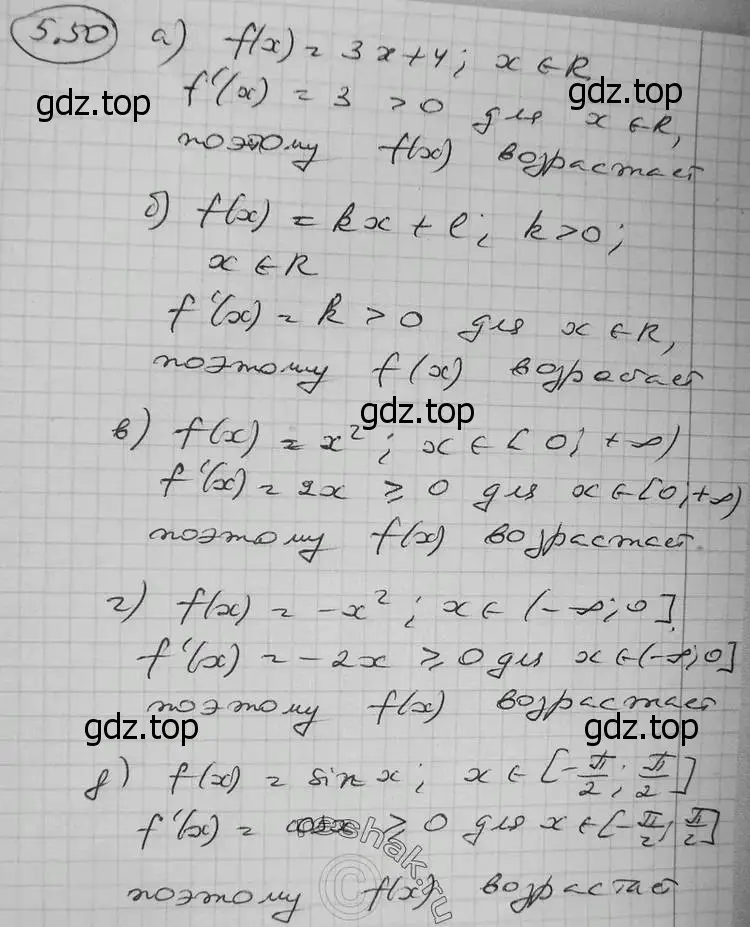 5.50 а) f(x) = 3x+4; x ∈ R
gdz.top gdz.top
f'(x) = 3 > 0 для x ∈ R,
поэтому f(x) возрастает
б) f(x) = kx + l; k>0;
x ∈ R
f'(x) = k > 0 для x ∈ R,
поэтому f(x) возрастает
gdz.top
в) f(x) = x²; x ∈ [0; +∞)
f'(x) = 2x ≥ 0 для x ∈ [0; +∞)
поэтому f(x) возрастает.
г) f(x) = -x²; x ∈ (-∞; 0]
f'(x) = -2x ≥ 0 для x ∈ (-∞; 0]
поэтому f(x) возрастает
gdz.top gdz.top
д) f(x) = sin x; x ∈ [-π/2; π/2]
f'(x) = cos x ≥ 0 для x ∈ [-π/2; π/2]
поэтому f(x) возрастает
©reshak.ru